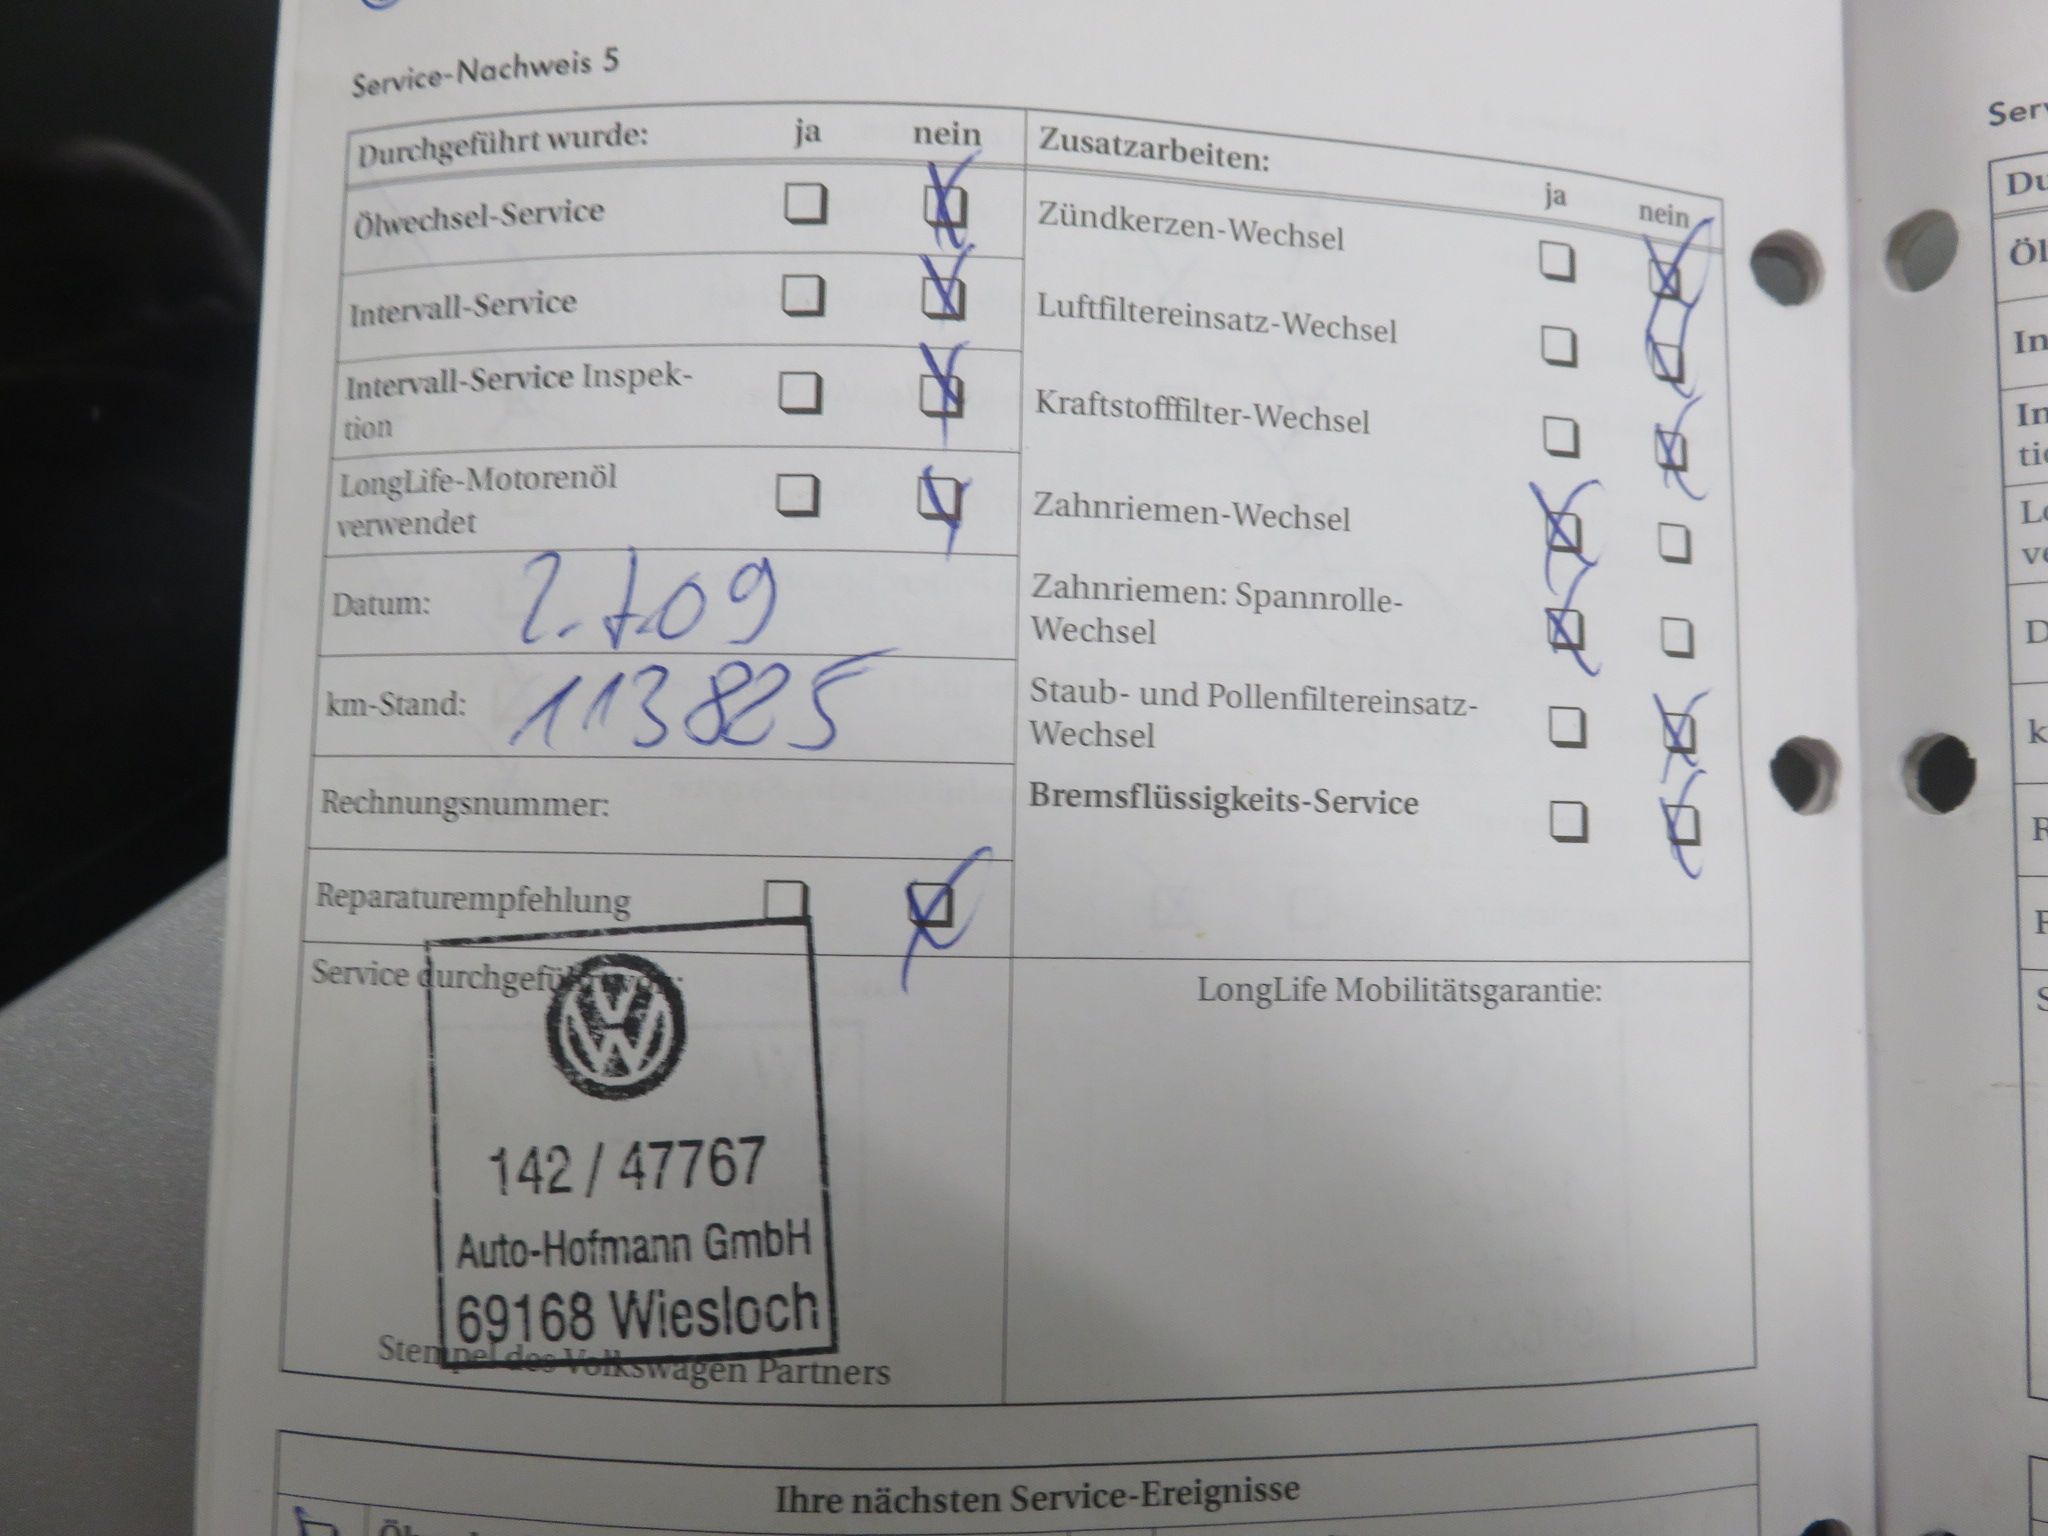 Service-Nachweis 5
Durchgeführt wurde: ja nein
Ölwechsel-Service
Intervall-Service
Intervall-Service Inspek-
tion
LongLife-Motorenöl
verwendet
Datum: 2.7.09
km-Stand: 113825
Rechnungsnummer:
Reparaturempfehlung
Service durchgeführt von:
142 / 47767
Auto-Hofmann GmbH
69168 Wiesloch
Stempel des Volkswagen Partners
Zusatzarbeiten:
ja nein
Zündkerzen-Wechsel
Luftfiltereinsatz-Wechsel
Kraftstofffilter-Wechsel
Zahnriemen-Wechsel
Zahnriemen: Spannrolle-
Wechsel
Staub- und Pollenfiltereinsatz-
Wechsel
Bremsflüssigkeits-Service
LongLife Mobilitätsgarantie:
Ihre nächsten Service-Ereignisse